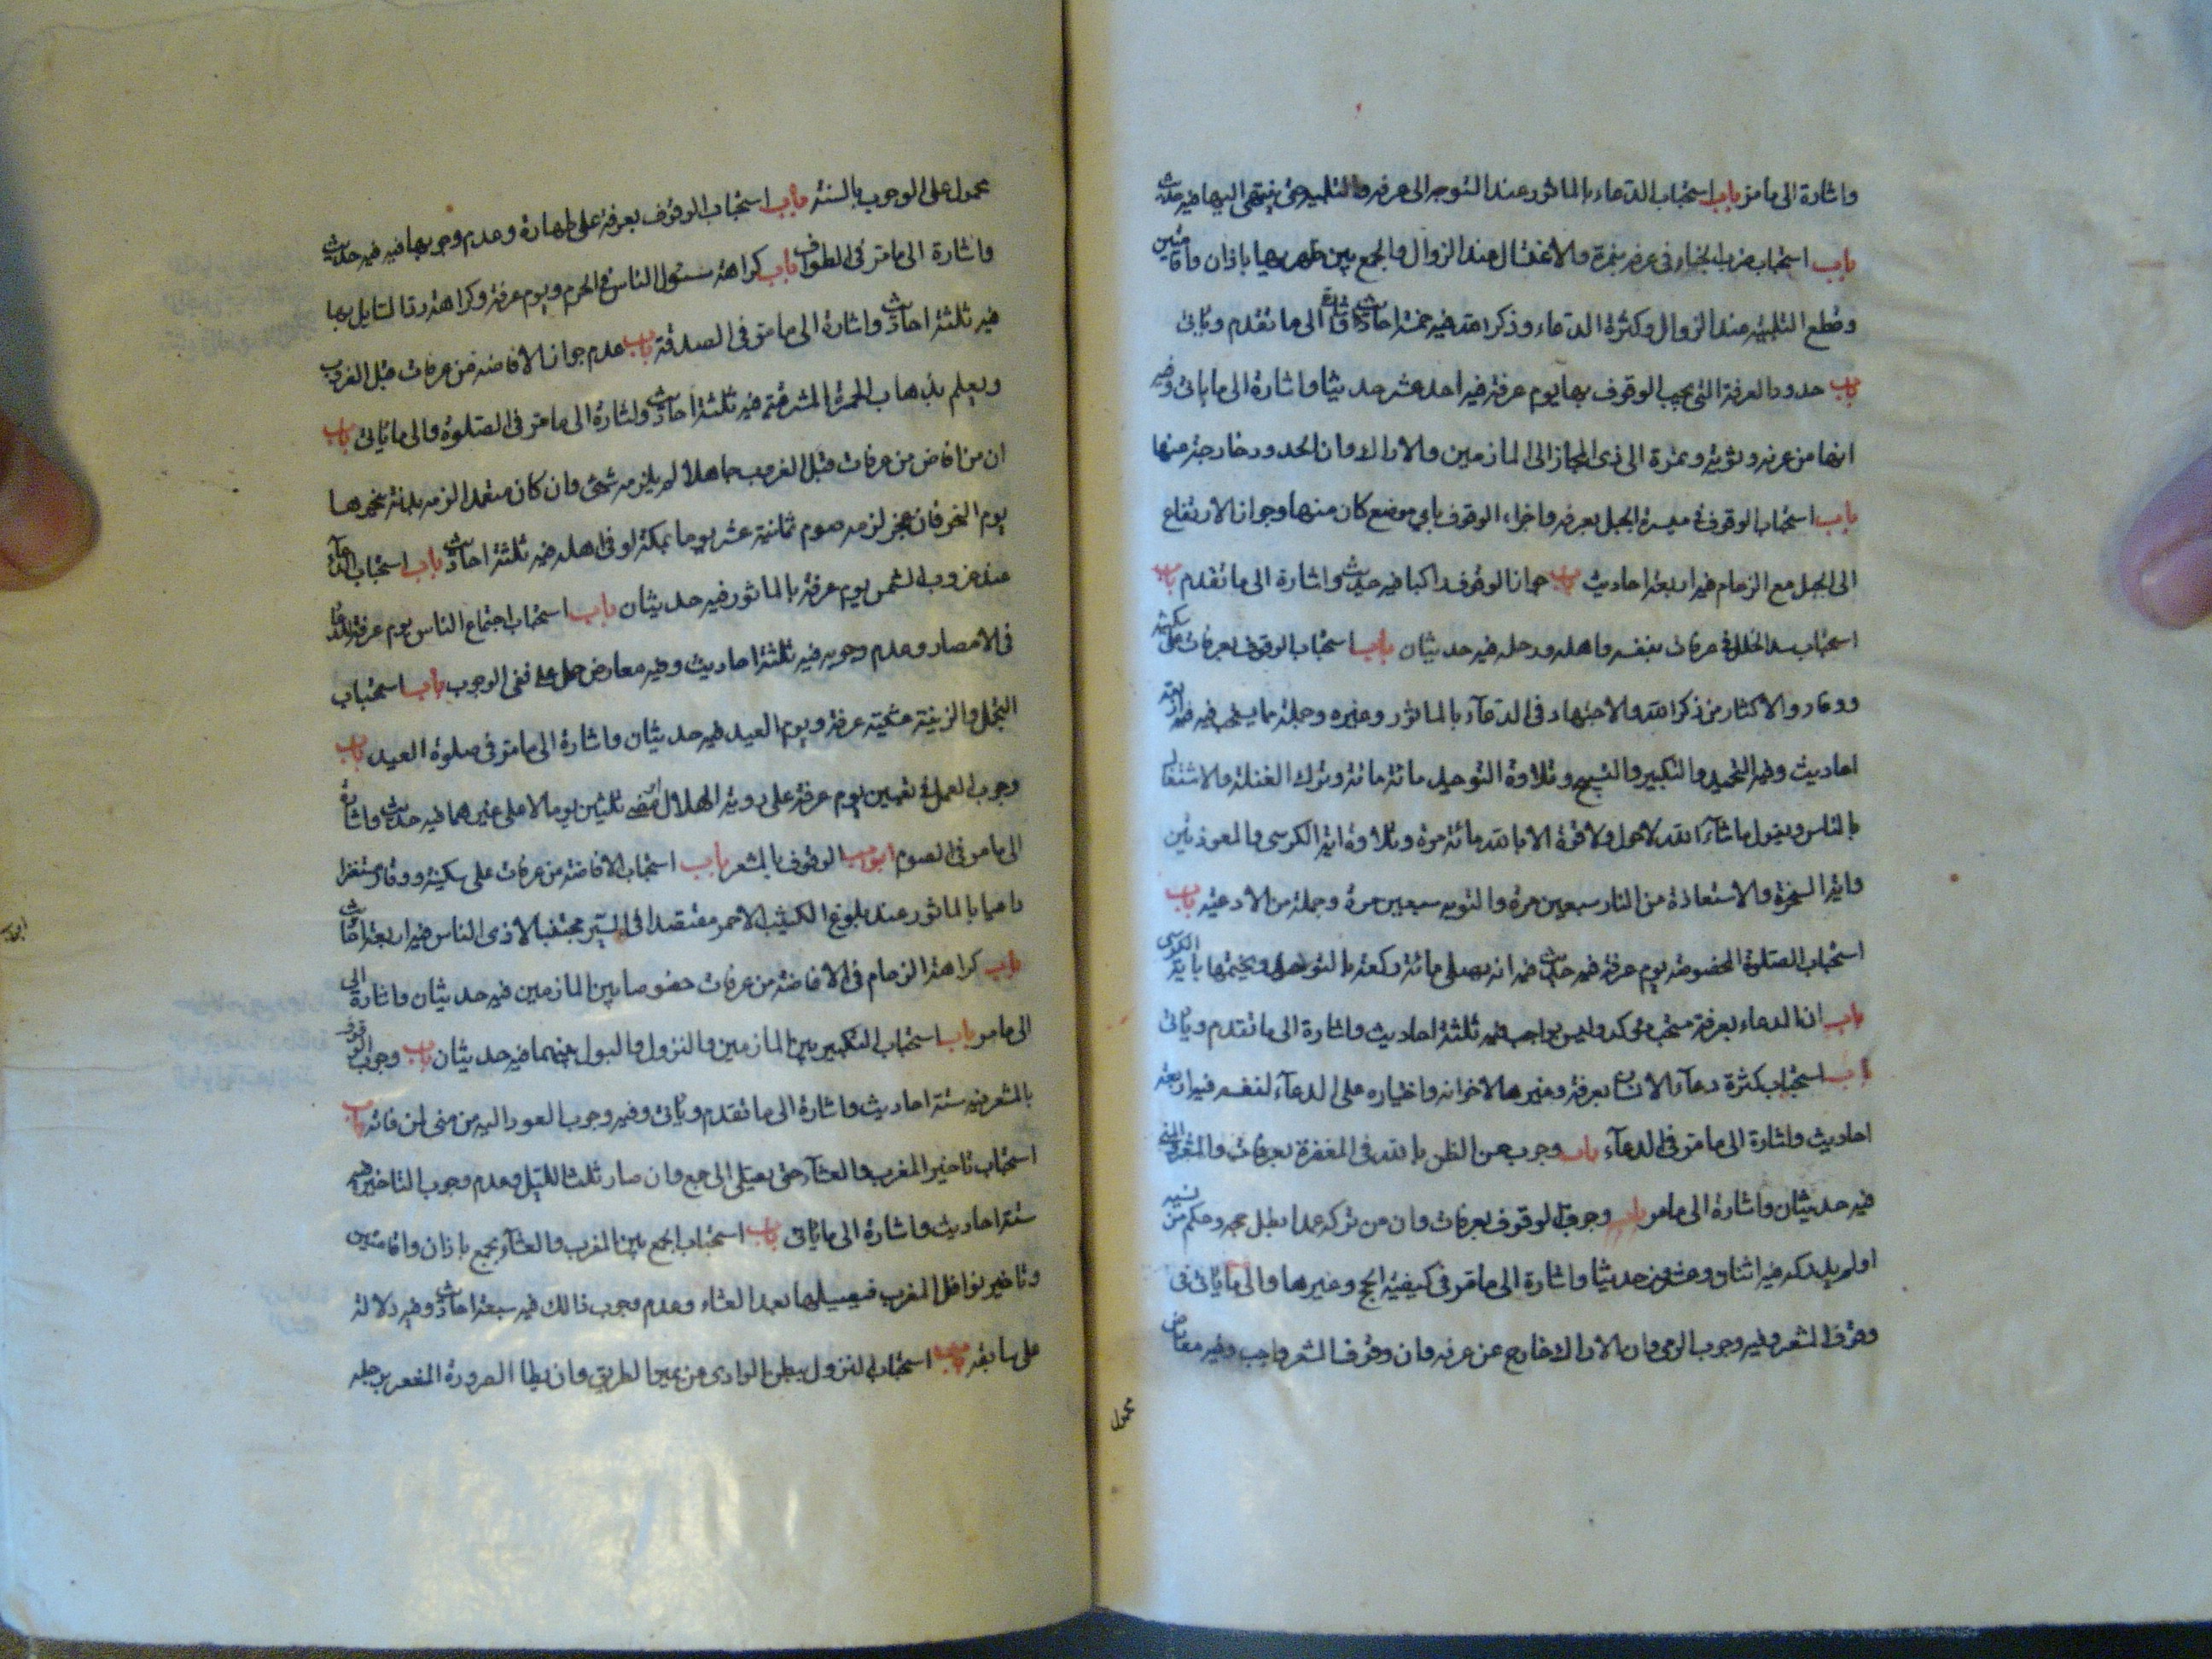 واشارة الى ما مر باب استحباب الدعاء بالماثور عند التوجه الى عرفه والتلبيه حتى ينتهى اليها فيه حديث
باب استحباب ضرب الخباء فى عرفه بنمرة والاغتسال عند الزوال والجمع بين ظهريها باذان واقامتين
وقطع التلبيه عند الزوال وكثرة الدعاء وذكر الله فيه خمسة احاديث واشارة الى ما تقدم وياتى
باب حدود العرفة التى يجب الوقوف بها يوم عرفة فيه احد عشر حديثا واشارة الى ما ياتى وفيه
انها من عرنه وثويه ونمرة الى ذى المجاز الى المازمين والاراك وان الحدود خارجة منها
باب استحباب الوقوف فى ميسرة الجبل بعرفه واجزاء الوقوف باى موضع كان منها وجواز الارتفاع
الى الجبل مع الزحام فيه اربعة احاديث باب جواز الوقوف راكبا فيه حديث واشارة الى ما تقدم باب
استحباب سد الخلل فى عرفات بنفسه واهله ورحله فيه حديثان باب استحباب الوقوف بعرفات على سكينة
ووقار والاكثار من ذكر الله والاجتهاد فى الدعآء بالماثور وغيره وجملة ما يستحب فيه فيه اربعة
احاديث وفيه التحميد والتكبير والتسبيح وتلاوة التوحيد مائة مائة وترك الغفلة والاشتغال
بالناس ويقول ما شآء الله لا حول ولا قوة الا بالله مائة مرة وتلاوة اية الكرسى والمعوذتين
واية السخرة والاستعاذة من النار سبعين مرة والتوبه سبعين مرة وجملة من الادعيه باب
استحباب الصلوة المخصوصه يوم عرفة فيه حديث فيه انه يصلى مائة ركعة بالتوحيد ويختمها باية الكرسى
باب ان الدعاء بعرفة مستحب مؤكد وليس بواجب فيه ثلثة احاديث واشارة الى ما تقدم وياتى
باب استحباب كثرة دعآء الانسان بعرفة وغيرها لاخوانه واختياره على الدعآء لنفسه فيه اربعة
احاديث واشارة الى ما مر فى الدعآء باب وجوب حسن الظن بالله فى المغفرة بعرفات والمشعر ومنى
فيه حديثان واشارة الى ما مر باب وجوب الوقوف بعرفات وان من تركه عمدا بطل حجه وحكم من نسيه
او لم يدركه فيه اثنان وعشرون حديثا واشارة الى ما مر فى كيفية الحج وغيرها والى ما ياتى فى
وقوف المشعر وفيه وجوب الرمى وان الاراك خارج عن عرفه وان وقوف المشعر واجب وفيه معارض
محمول
محمول على الوجوب بالسنة باب استحباب الوقوف بعرفة على طهارة وعدم وجوبها فيه فيه حديث
واشارة الى ما مر فى الطواف باب كراهة سئول الناس فى الحرم ويوم عرفة وكراهة رد السايل بها
فيه ثلثة احاديث واشارة الى ما مر فى الصدقة باب عدم جواز الافاضه من عرفات قبل الغروب
ويعلم بذهاب الحمرة المشرقيه فيه ثلثة احاديث واشارة الى ما مر فى الصلوة والى ما ياتى باب
ان من افاض من عرفات قبل الغروب جاهلا لم يلزمه شئ وان كان متعمدا لزمه بدنة ينحرها
يوم النحر فان عجز لزمه صوم ثمانية عشر يوما بمكة او فى اهله فيه ثلثة احاديث باب استحباب الدعآء
عند غروب الشمس يوم عرفة بالماثور فيه حديثان باب استحباب اجتماع الناس يوم عرفة للدعا
فى الامصار وعدم وجوبه فيه ثلثة احاديث وفيه معارض حمل على نفى الوجوب باب استحباب
التجمل والزينة عشية عرفة ويوم العيد فيه حديثان واشارة الى ما مر فى صلوة العيد باب
وجوب العمل فى تعيين يوم عرفة على روية الهلال او مضى ثلثين يوما لا على غيرهما فيه حديث واشارة
الى ما مر فى الصوم ابواب الوقوف بالمشعر باب استحباب الافاضة من عرفات على سكينة ووقار مستغفرا
داعيا بالماثور عند بلوغ الكثيب الاحمر مقتصدا فى السير مجتنبا لاذى الناس فيه اربعة احاديث
باب كراهة الزحام فى الافاضة من عرفات خصوصا بين المازمين فيه حديثان واشارة الى
الى ما مر باب استحباب التكبير بين المازمين والنزول والبول بينهما فيه حديثان باب وجوب الوقوف
بالمشعر فيه ستة احاديث واشارة الى ما تقدم وياتى وفيه وجوب العود اليه من منى لمن فاته باب
استحباب تاخير المغرب والعشآء حتى يصلى الى جمع وان صار ثلث الليل وعدم وجوب التاخير فيه
ستة احاديث واشارة الى ما ياتى باب استحباب الجمع بين المغرب والعشآء بجمع باذان واقامتين
وتاخير نوافل المغرب فيصليها بعد العشاء وعدم وجوب ذالك فيه سبعة احاديث وفيه دلالة
على سابقه باب استحباب النزول ببطن الوادى عن يمين الطريق وان يطا الصرورة المشعر برجله
ابواب